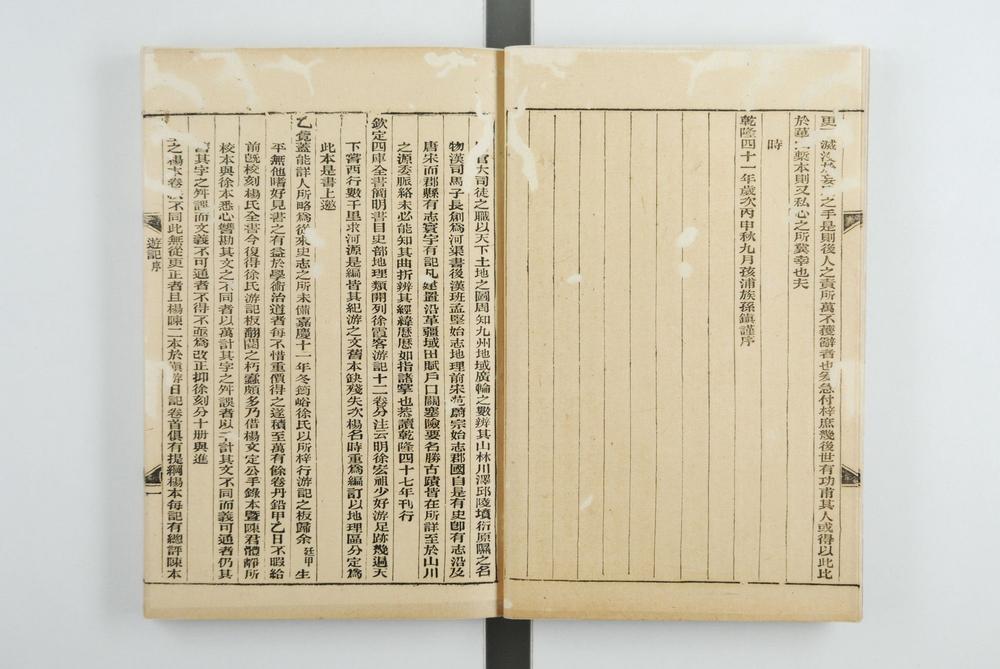 更一滅沒於妄之手是則後人之責所萬不獲辭者也爰急付梓庶幾後世有功甫其人或得以此比
於華藁本則又私心之所冀幸也夫
時
乾隆四十一年歲次丙申秋九月孩浦族孫鎮謹序
官大司徒之職以天下土地之圖周知九州地域廣輪之數辨其山林川澤邱陵墳衍原隰之名
物漢司馬子長創爲河渠書後漢班孟堅始志地理前宋范蔚宗始志郡國自是有史卽有志沿及
唐宋而郡縣有志寰宇有記凡建置沿革疆域田賦戶口關塞險要名勝古蹟皆在所詳至於山川
之源委脈絡未必能知其曲折辨其經緯歷歷如指諸掌也恭讀乾隆四十七年刊行
欽定四庫全書簡明書目史部地理類開列徐霞客游記十二卷分注云明徐宏祖少好游足跡幾遍天
下嘗西行數千里求河源是編皆其紀游之文舊本缺殘失次楊名時重爲編訂以地理區分定爲
此本是書上邀
乙覽蓋能詳人所略爲從來史志之所未備嘉慶十一年冬筠峪徐氏以所梓行游記之板歸余廷甲生
平無他嗜好見書之有益於學術治道者每不惜重價得之遂積至萬有餘卷丹鉛甲乙日不暇給
前旣校刻楊氏全書今復得徐氏游記板翻閱之朽蠹頗多乃借楊文定公手錄本曁陳君體靜所
校本與徐本悉心讐勘其文之不同者以萬計其字之舛誤者以千計其文不同而義可通者仍其
舊其字之舛譌而文義不可通者不得不亟爲改正抑徐刻分十册與進
之楊本卷次不同此無從更正者且楊陳二本於滇游日記卷首俱有提綱楊本每記有總評陳本
遊記序
一